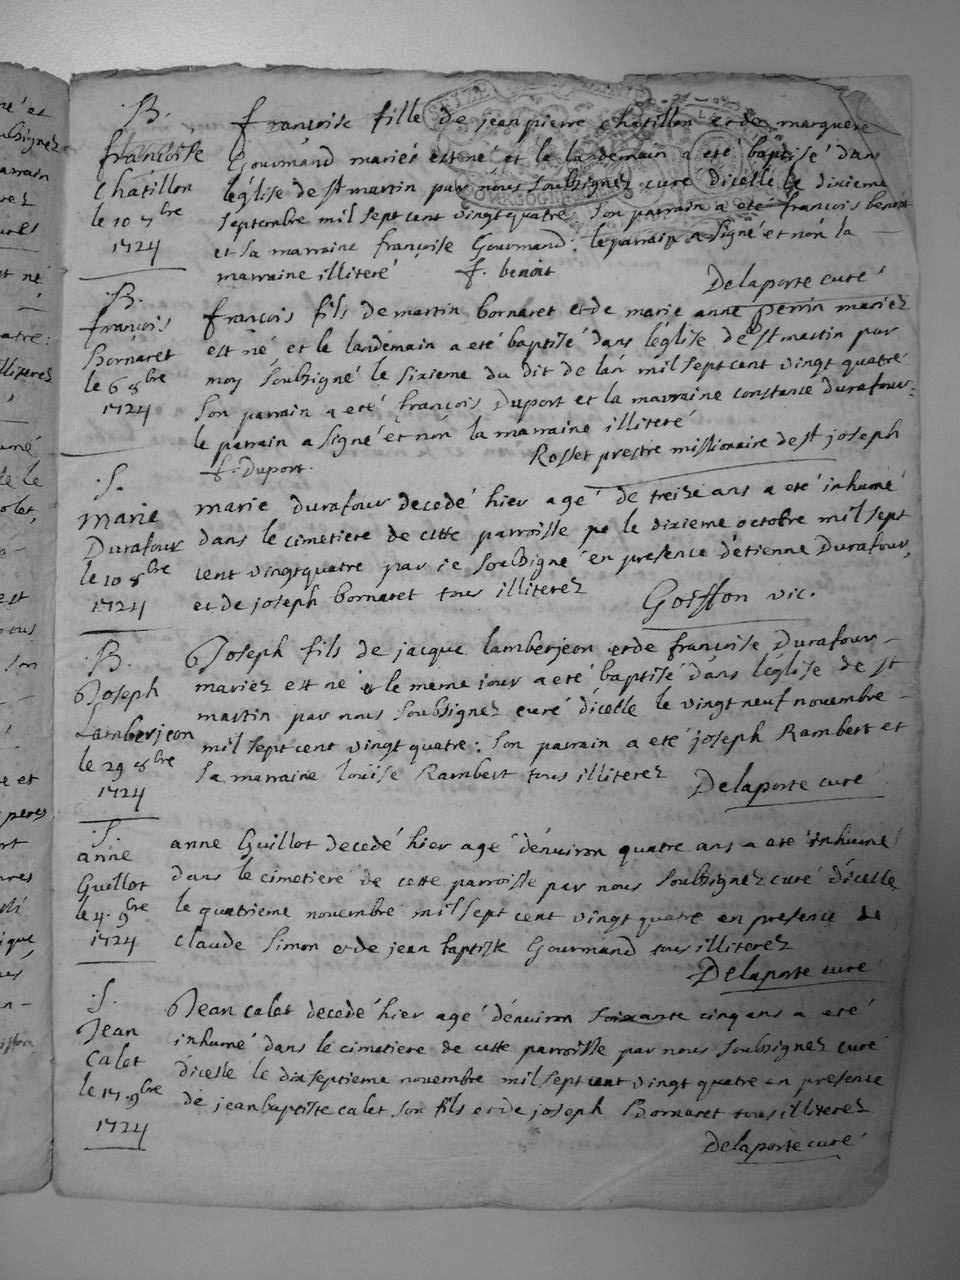 B.
françoise
Chatillon
le 10 7bre
1724
françoise fille de jean pierre chatillon et de marguere
Gourmand mariés est né et le landemain a eté baptisé dans
léglise de st martin par nous soubsignez curé dicelle le dixieme
septembre mil sept cent vingt quatre: son parrain a eté françois benoit
et sa marraine françoise Gourmand: le parrain a signé et non la
marraine illiteré f. benoit
Delaporte curé
B.
françois
Bornaret
le 6 8bre
1724
françois fils de martin bornaret et de marie anne perrin mariez
est né et le landemain a eté baptisé dans léglise de st martin par
moy soubsigné le sixieme du dit de lan mil sept cent vingt quatre
son parrain a eté françois Duport et la marraine constance durafour:
le parrain a signé et non la marraine illiteré
f. Duport.
Rosset prestre missionaire de st joseph
S.
marie
Durafour
le 10 8bre
1724
marie durafour decedé hier agé de treize ans a eté inhumé
dans le cimetiere de cette parroisse le dixieme octobre mil sept
cent vingt quatre par je soubsigné en presence détienne Durafour,
et de joseph bornaret tous illiterez
Goiffon vic.
B.
Joseph
Lamberjeon
le 29 8bre
1724
Joseph fils de jacque lamberjeon et de françoise Durafour
mariez est né et le meme jour a eté baptisé dans léglise de st
martin par nous soubsignez curé dicelle le vingt neuf novembre
mil sept cent vingt quatre: son parrain a eté joseph Rambert et
sa marraine louise Rambert tous illiterez
Delaporte curé
S.
anne
Guillot
le 4. 9bre
1724
anne Guillot decedé hier agé dénviron quatre ans a eté inhumé
dans le cimetiere de cette parroisse par nous soubsignez curé dicelle
le quatrieme novembre mil sept cent vingt quatre en presence de
claude Simon et de jean baptiste Gourmand tous illiterez
Delaporte curé
S.
Jean
Calet
le 17. 9bre
1724
Jean calet decedé hier agé dénviron soixante cinq ans a eté
inhumé dans le cimetiere de cette parroisse par nous soubsignez curé
dicelle le dixseptieme novembre mil sept cent vingt quatre en presence
de jean baptiste calet son fils et de joseph Bornaret tous illiterez
Delaporte curé